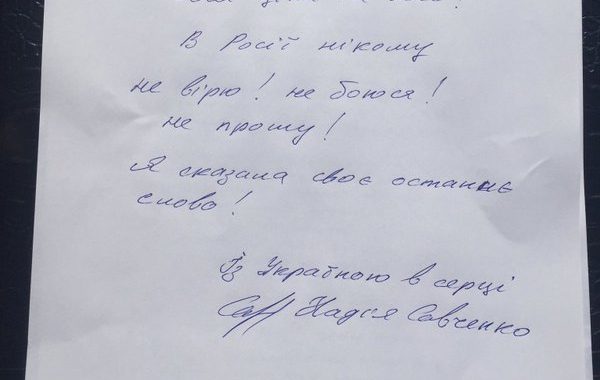 В Росії нікому
не вірю! не боюся!
не прошу!
Я сказала своє останнє
слово!
Із Україною в серці
Надія Савченко